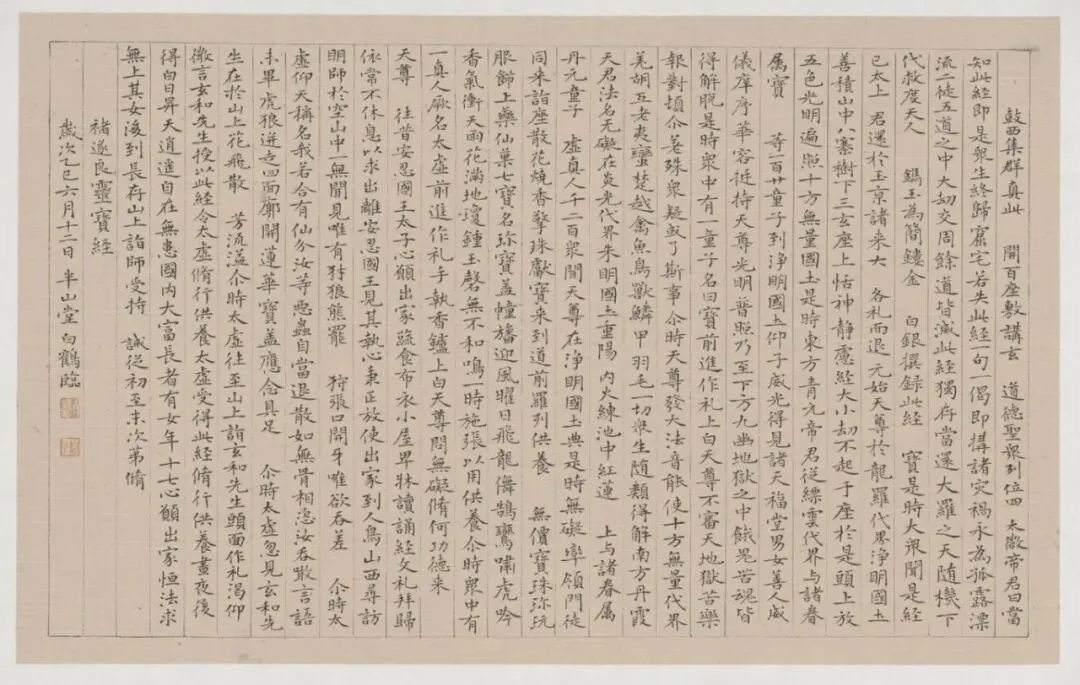 鼓西集群真此 開百座敷講玄 道德聖衆列位四 太徽帝君曰當
知此經即是衆生終歸窟宅若失此經一句一偈即搆諸灾禍永為孤露漂
流二徒五道之中大劫交周餘道皆滅此經獨存當還大羅之天随機下
代救度天人 鐫玉為簡鏤金 白銀撰録此經 寶是時大衆聞是經
已太上 君還於玉京諸来大 各礼而退元始天尊於龍羅代界淨明國土
善積山中八騫樹下三玄座上恬神静慮経大小劫不起于座於是頭上放
五色光明遍照十方無量國土是時東方青元帝君従縹雲代界与諸眷
属寶 等一百廿童子到淨明國土仰子威光得見諸天福堂男女善人威
儀庠序華容挺持天尊光明普照乃至下方九幽地獄之中餓鬼苦魂皆
得解脱是時衆中有一童子名曰寶前進作礼上白天尊不審天地獄苦樂
報對頓尒若殊衆疑或了斯事尒時天尊發大法音能使十方無量代界
羌胡五老夷蠻楚越禽魚鳥獸鱗甲羽毛一切衆生随類得解南方丹霞
天君法名无礙在炎光代界朱明國土重陽 内火練池中紅蓮 上与諸眷属
丹元童子 虚真人千二百衆聞天尊在淨明國土典是時無礙率領門徒
同来詣座散花燒香擎珠獻寶来到道前羅列供養 無價寶珠弥玩
服餙上藥仙菓七寶名琛寶盖幢旛迎風曜日飛龍儛鵠鸞嘯虎吟
香氣衝天雨花滿地瓊鍾玉磬無不和鳴一時施張以用供養尒時衆中有
一真人厥名太虚前進作礼手執香鑪上白天尊問無礙脩何功徳来
天尊 往昔安忍國王太子心願出家蔬食布衣小屋卑牀讀誦経文礼拜歸
依常不休息以求出離安忍國王見其執心秉正放使出家到人鳥山西尋訪
明師於空山中一無聞見唯有豺狼熊羆 狩張口開牙唯欲吞差 尒時太
虚仰天稱名我若合有仙分汝等惡蟲自當退散如無骨相恣汝吞噉言語
未畢虎狼迸走四面廓開蓮華寶盖應念具足 尒時太虚忽見玄和先
生在於山上花飛散 芳流溢尒時太虚往至山上詣玄和先生頭面作礼渴仰
徽言玄和先生授以此経令太虚脩行供養太虚受得此経脩行供養晝夜後
得白日昇天逍遥自在無恚國内大富長者有女年十七心願出家恒法求
無上其女後到長存山上詣師受持 誠従初至末次第脩
褚遂良靈寶經
歲次乙巳六月十二日 半山堂白鶴臨